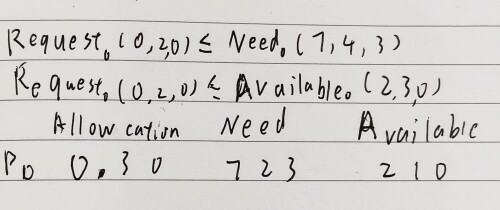 Request₀ (0,2,0) ≤ Need₀ (7,4,3)
Request₀ (0,2,0) ≤ Available₀ (2,3,0)
Allowcation Need Available
P0 0.30 723 210